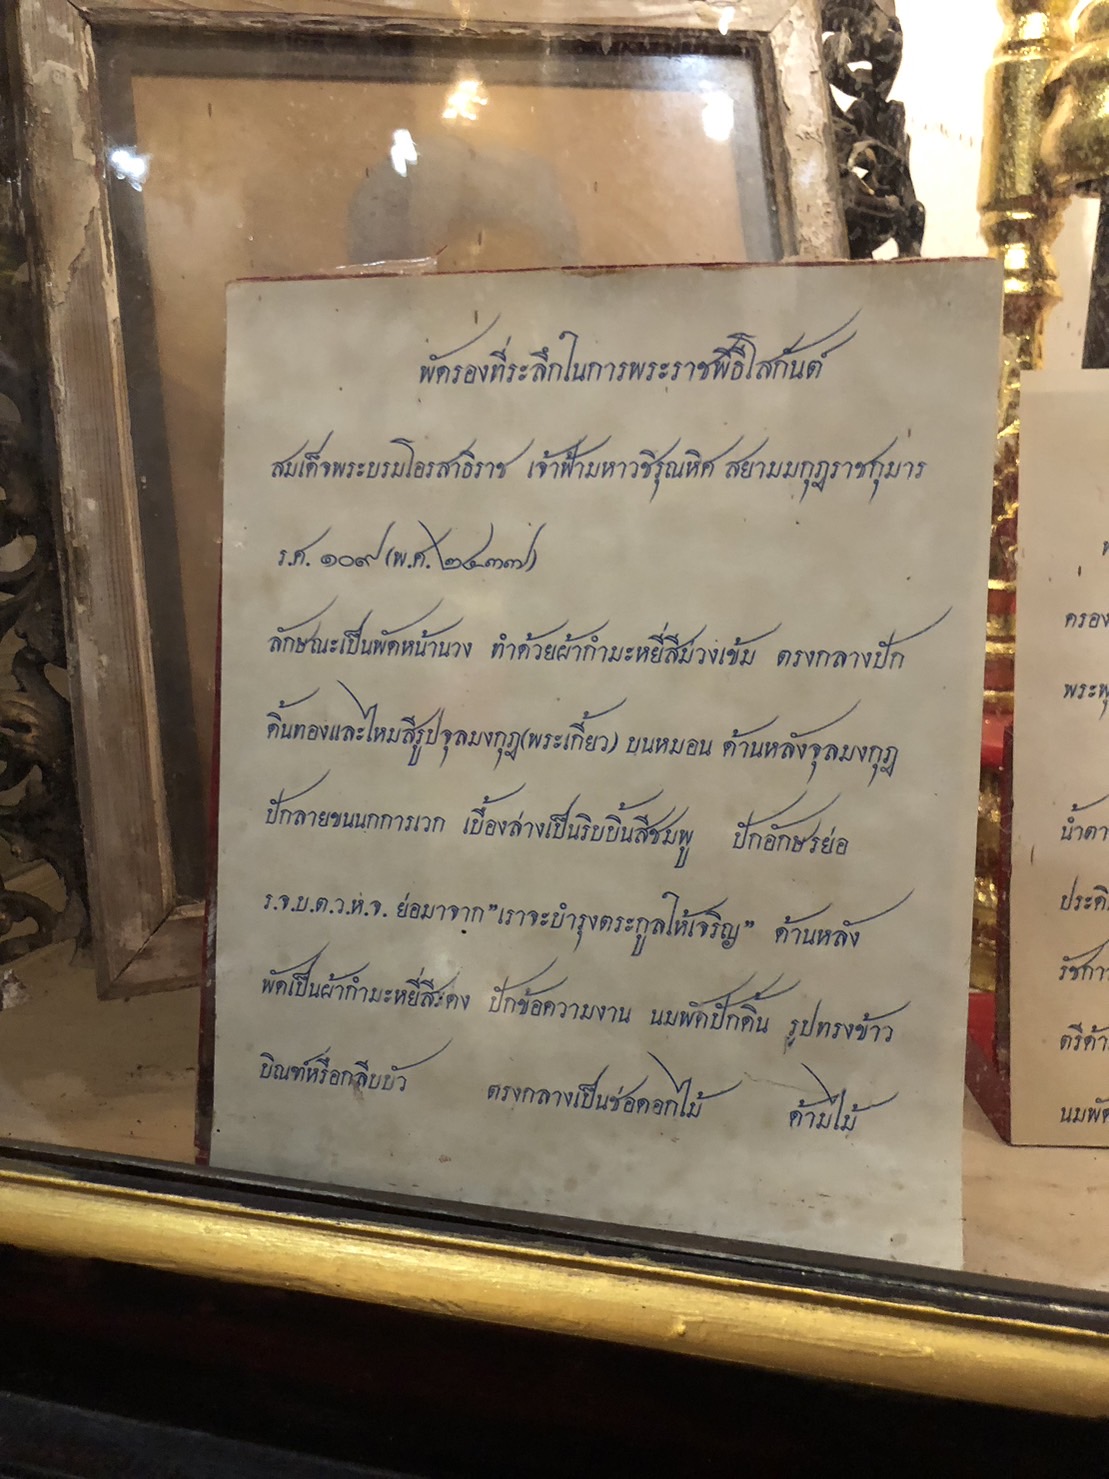 พัดรองที่ระลึกในการพระราชพิธีโสกันต์
สมเด็จพระบรมโอรสาธิราช เจ้าฟ้ามหาวชิรุณหิศ สยามมกุฎราชกุมาร
ร.ศ. ๑๐๙ (พ.ศ. ๒๔๓๓)
ลักษณะเป็นพัดหน้านาง ทำด้วยผ้ากำมะหยี่สีม่วงเข้ม ตรงกลางปัก
ดิ้นทองและไหมสีรูปจุลมงกุฎ(พระเกี้ยว) บนหมอน ด้านหลังจุลมงกุฎ
ปักลายขนนกการเวก เบื้องล่างเป็นริบบิ้นสีชมพู ปักอักษรย่อ
ร.จ.บ.ต.ว.ห.จ. ย่อมาจาก"เราจะบำรุงตระกูลให้เจริญ" ด้านหลัง
พัดเป็นผ้ากำมะหยี่สีแดง ปักข้อความงาน นมพัดปักดิ้น รูปทรงข้าว
บิณฑ์หรือกลีบบัว ตรงกลางเป็นช่อดอกไม้ ด้ามไม้
ครอง
น้ำตา
ตรีด้า
นมพัด